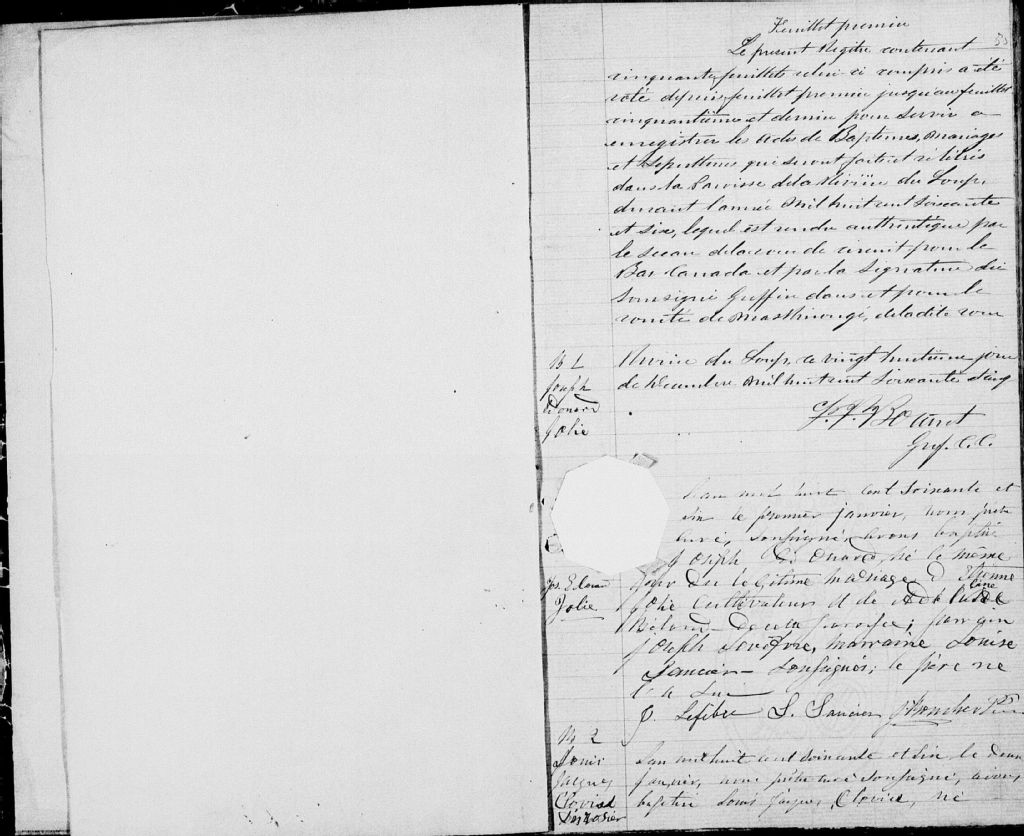 Feuillet premier
Le present Régitre contenant
cinquante feuillets celui-ci compris a été
coté depuis feuillet premier jusqu'au feuillet
cinquantième et dernier pour servir a
enregistrer les actes de Baptemes, Mariages
et Sepultures qui seront faits et célébrés
dans la Paroisse de la Rivière du Loup,
durant l'année Mil huit cent soixante
et six, lequel est rendu authentique par
le sceau de la cour de circuit pour le
Bas Canada et par la signature du
soussigné Greffier dans et pour le
comté de Maskinongé, de la dite cour
Rivière du Loup, ce vingt huitième jour
de Décembre Mil huit cent soixante et cinq
Gref. C. C.
B 1
Joseph
Edouard
Jolie
Jos. Edouard
Jolie
L'an mil huit cent soixante et
six le premier janvier, nous prêtre
curé, soussigné, avons baptisé
Joseph Edouard, né le même
jour du légitime mariage d'Etienne
Jolie cultivateur et de Adeline
Béland de cette paroisse; parrain
Joseph Lefebvre, marraine Louise
Saucier soussignés; le père ne
J. Lefebvre L. Saucier J. Boucher Ptre
B 2
Louis
Jacques
Clovis
Desrosier
L'an mil huit cent soixante et six, le deux
janvier, nous prêtre curé soussigné, avons
baptisé Louis Jacques Clovis, né